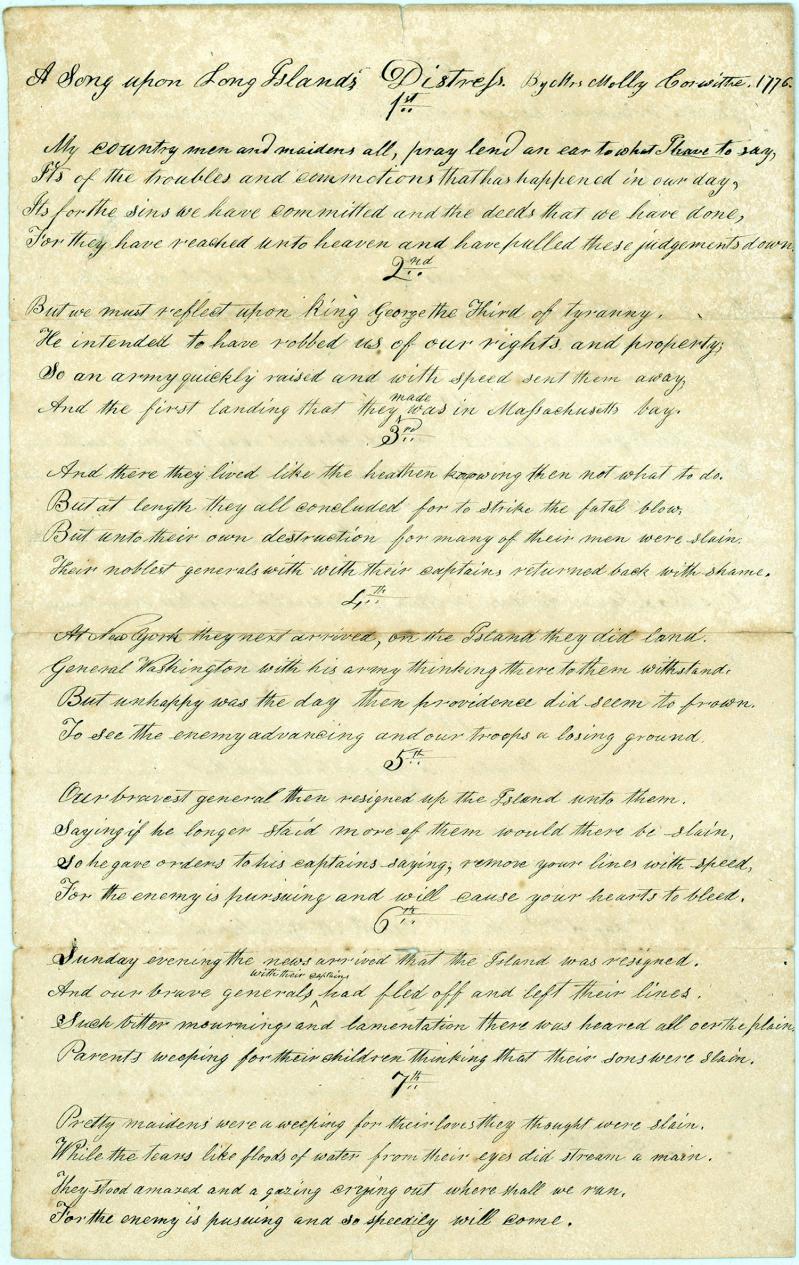 A Song upon Long Island's Distress. By Mrs Molly Corwithe. 1776.
1st
My country men and maidens all, pray lend an ear to what I have to say,
Its of the troubles and commotions that has happened in our day,
Its for the sins we have committed and the deeds that we have done,
For they have reached unto heaven and have pulled these judgements down.
2nd
But we must reflect upon King George the Third of tyranny.
He intended to have robbed us of our rights and property;
So an army quickly raised and with speed sent them away,
And the first landing that they made was in Massachusetts bay.
3rd
And there they lived like the heathen knowing then not what to do.
But at length they all concluded for to strike the fatal blow,
But unto their own destruction for many of their men were slain.
Their noblest generals with with their captains returned back with shame.
4th
At New York they next arrived, on the Island they did land.
General Washington with his army thinking there to them withstand.
But unhappy was the day then providence did seem to frown.
To see the enemy advancing and our troops a losing ground.
5th
Our bravest general then resigned up the Island unto them.
Saying if he longer staid more of them would there be slain,
So he gave orders to his captains saying, remove your lines with speed,
For the enemy is pursuing and will cause your hearts to bleed.
6th
Sunday evening the news arrived that the Island was resigned.
And our brave generals with their captains had fled off and left their lines.
Such bitter mournings and lamentation there was heared all oer the plain.
Parents weeping for their children thinking that their sons were slain.
7th
Pretty maidens were a weeping for their loves they thought were slain.
While the tears like floods of water from their eyes did stream a main.
They stood amazed and a gazing crying out where shall we run,
For the enemy is pusuing and so speedily will come.